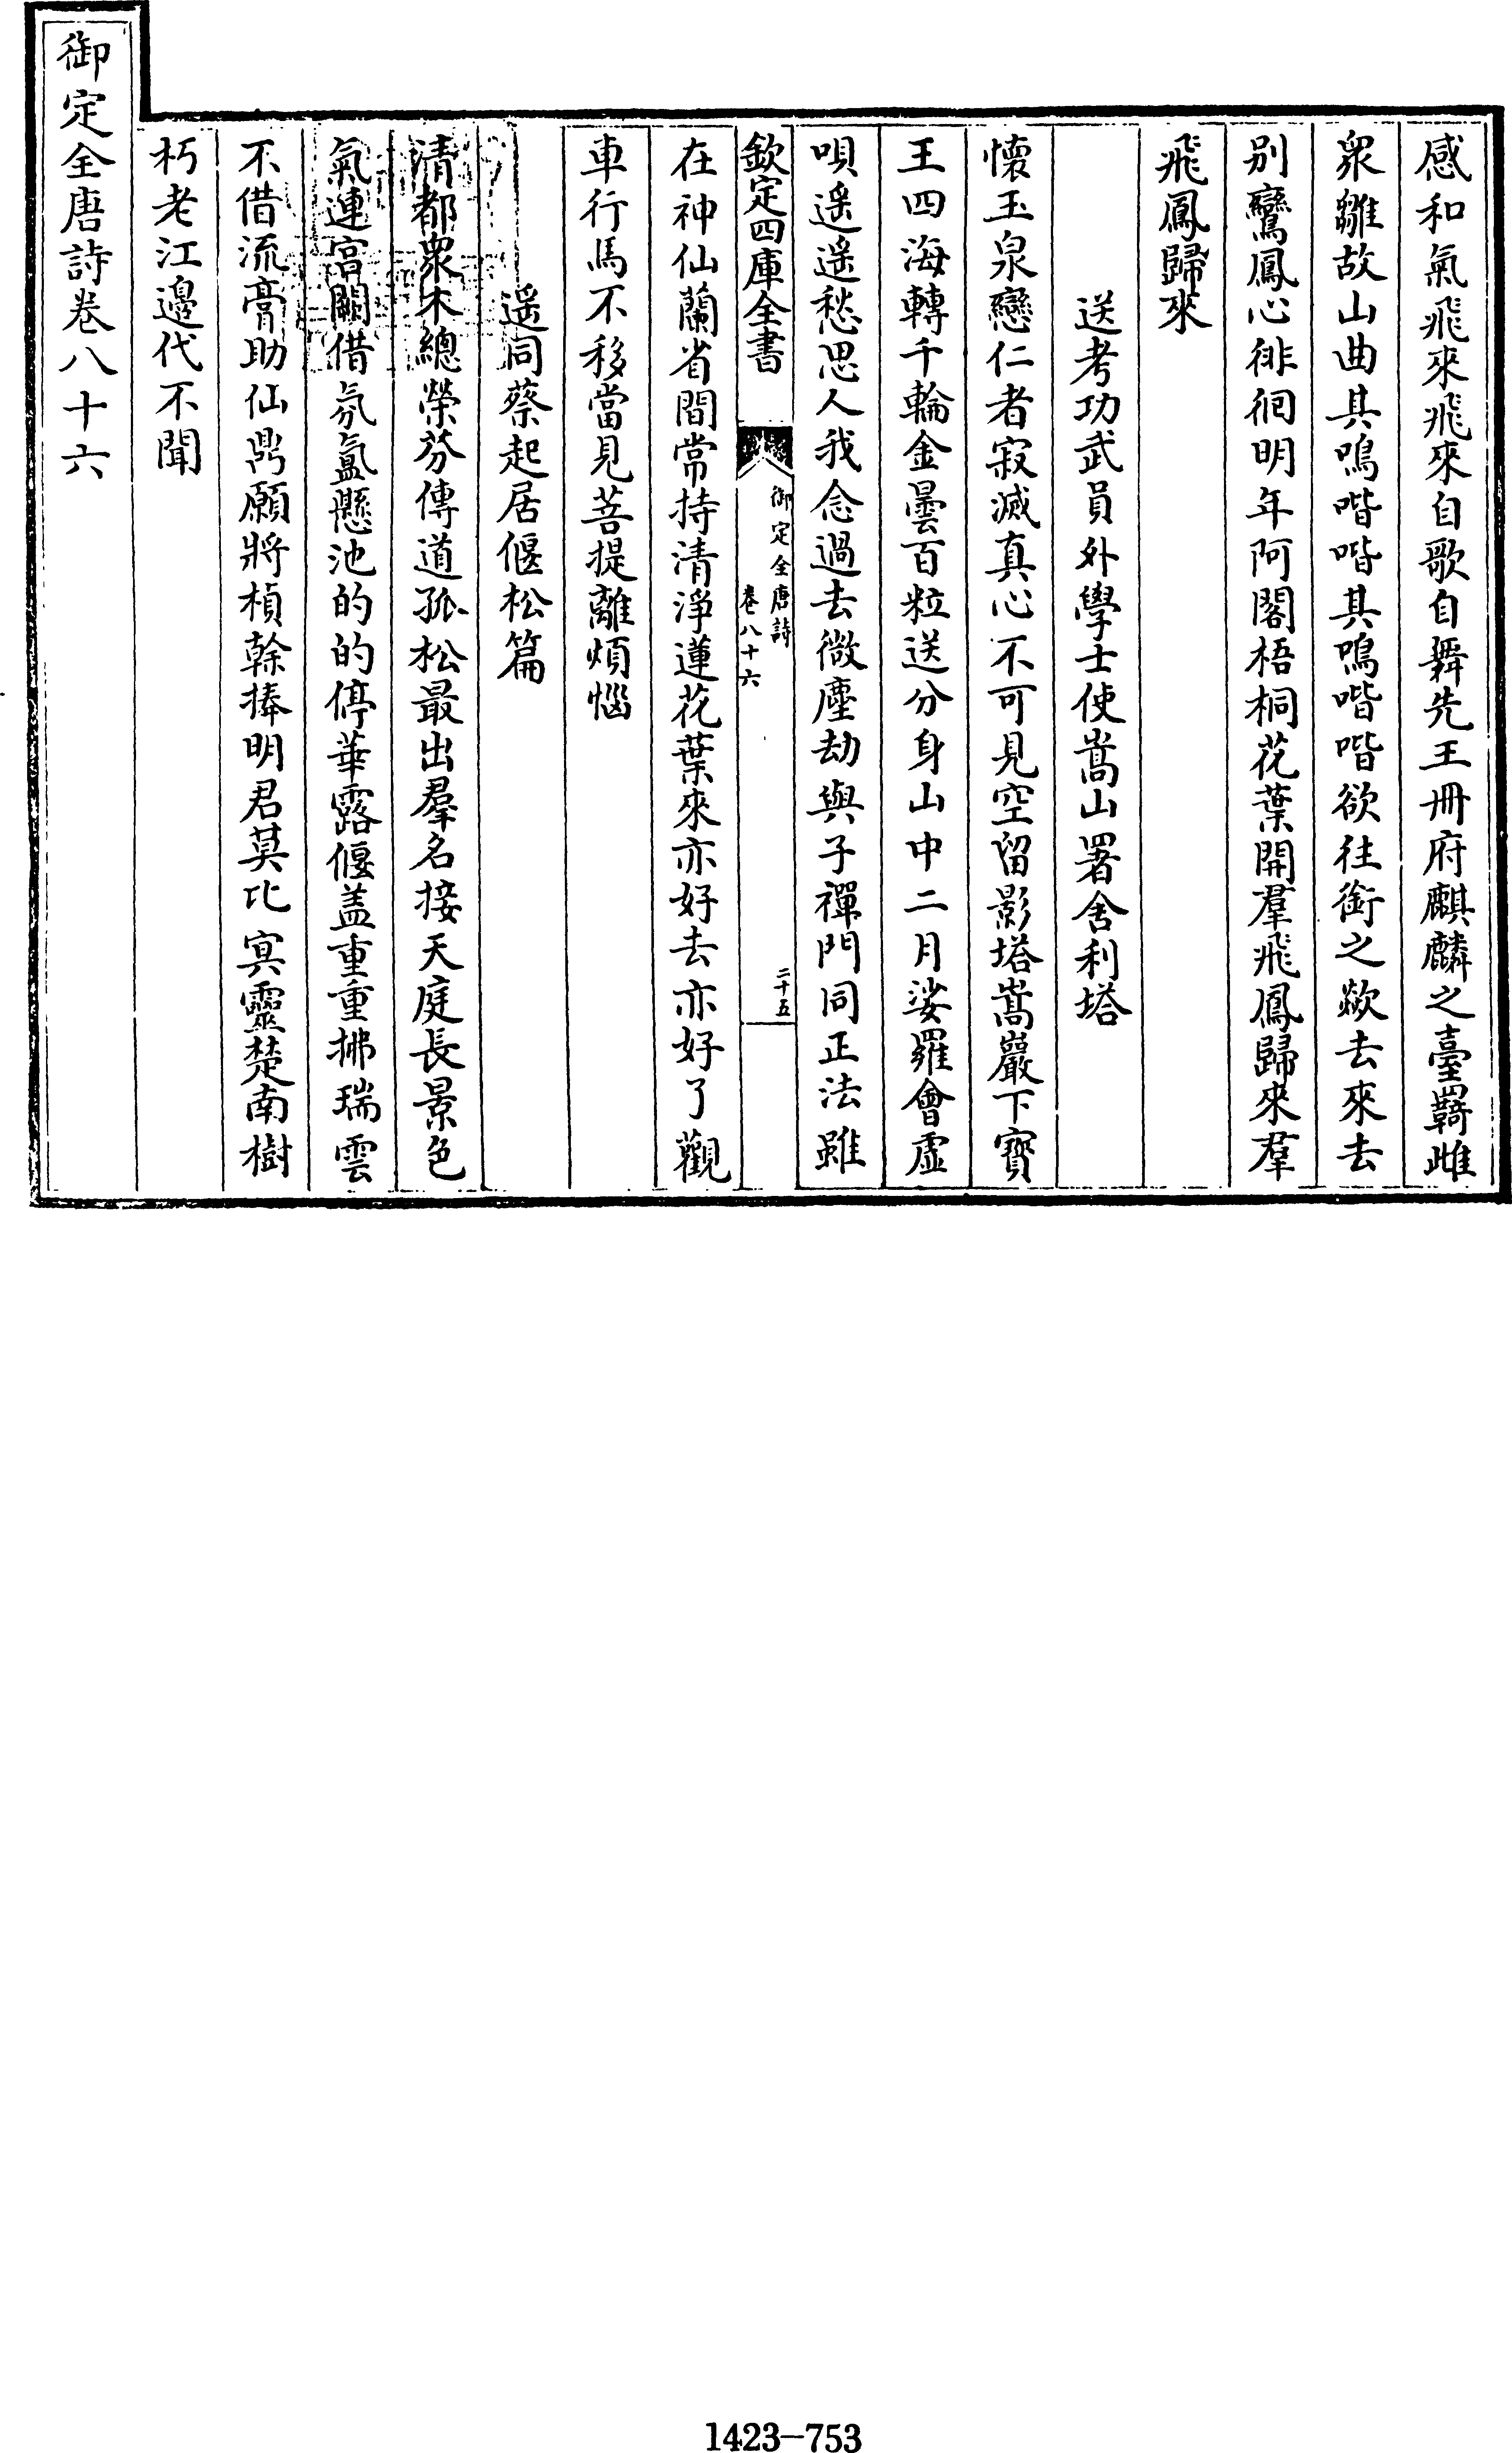 感和氣飛來飛來自歌自舞先王冊府麒麟之臺羇雌
衆雛故山曲其鳴喈喈其鳴喈喈欲往銜之歘去來去
别鸞鳳心徘徊明年阿閣梧桐花葉開羣飛鳳歸來羣
飛鳳歸來
送考功武員外學士使嵩山署舍利塔
懷玉泉戀仁者寂滅真心不可見空留影塔嵩巖下寳
王四海轉千輪金曇百粒送分身山中二月娑羅會虛
唄遥遥愁思人我念過去微塵劫與子禪門同正法雖
欽定四庫全書
御定全唐詩
卷八十六
二十五
在神仙蘭省間常持清淨蓮花葉來亦好去亦好了觀
車行馬不移當見菩提離煩惱
遥同蔡起居偃松篇
清都衆木總榮芬傳道孤松最出羣名接天庭長景色
氣連宫闕借氛氲懸池的的停華露偃盖重重拂瑞雲
不借流膏助仙鼎願將楨幹捧明君莫比冥靈楚南樹
朽老江邊代不聞
御定全唐詩卷八十六
1423-753